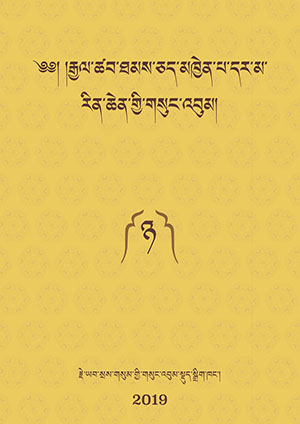 ༄༅། །རྒྱལ་ཚབ་ཐམས་ཅད་མཁྱེན་པ་དར་མ་
རིན་ཆེན་གྱི་གསུང་འབུམ།
༼ཉ༽
རྗེ་ཡབ་སྲས་གསུམ་གྱི་གསུང་འབུམ་སྡུད་སྒྲིག་ཁང་།
2019